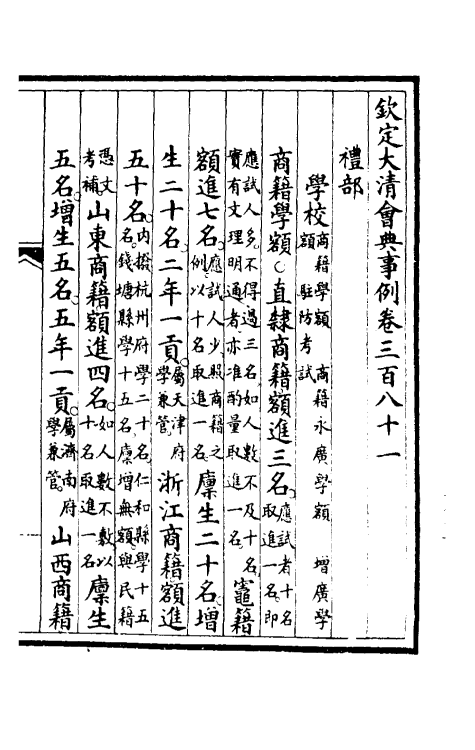 欽定大清會典事例卷三百八十一
禮部
學校商籍學額 商籍永廣學額 增廣學
額 駐防考試
商籍學額○直隸商籍額進三名應試者十名
取進一名即
應試人多不得過三名如人數不及十名
實有文理明通者亦准酌量取進一名竈籍
額進七名應試人少照商籍之
例以十名取進一名廩生二十名增
生二十名二年一貢屬天津府
學兼管浙江商籍額進
五十名內撥杭州府學二十名仁和縣學十五
名錢塘縣學十五名廩增無額與民籍
憑文
考補山東商籍額進四名如人數不敷以
十名取進一名廩生
五名增生五名五年一貢屬濟南府
學兼管山西商籍